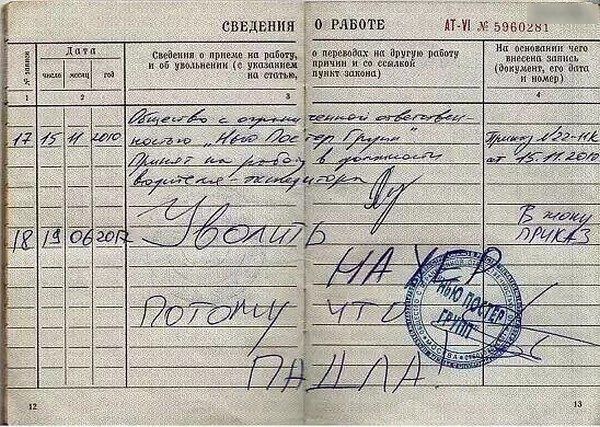 СВЕДЕНИЯ О РАБОТЕ АТ-VI № 5960281
№ записи
Дата
число месяц год
Сведения о приеме на работу,
и об увольнении (с указанием
на статью,
о переводах на другую работу
причин и со ссылкой
пункт закона)
На основании чего
внесена запись
(документ, его дата
и номер)
1 2 3 4
Общество с ограниченной ответствен-
17 15 11 2010 ностью „Нью Постер Групп"
Принят на работу в должности
водителя-экспедитора
Приказ №22-НК
от 15.11.2010
18 19 06 2012 УВОЛИТЬ
В жопу
ПРИКАЗ
НАХЕР
ПОТОМУ ЧТО
ПАДЛА.
НЬЮ ПОСТЕР
ГРУПП
МОСКВА
12 13